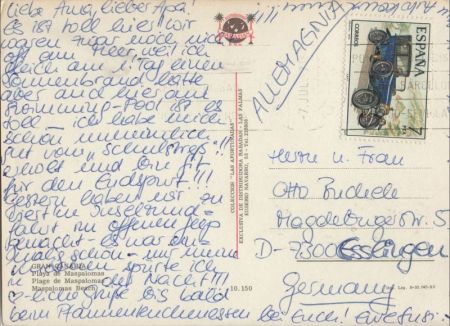 Liebe Ama, lieber Apa!
Es ist toll hier! Wir
waren zwar noch nicht
oft am Meer, weil ich
gleich am 1. Tag einen
Sonnenbrand hatte
aber auch hier am
Swimming-Pool ist es
toll – ich habe mich
schon
gut vom "Schulstress"
erholt und bin fit
für den Endspurt!!!
Gestern haben wir zu
viert ne Inselrund-
fahrt im offenen Jeep
gemacht – es war
schön – nur
spürte ich
in der Nacht!!!
-liche Grüße bis bald
beim Pfannenkuchenessen bei Euch!
ALLEMAGNIA
ESPAÑA
CORREOS
7
PTA
COLECCION "LAS AFORTUNADAS"
EXCLUSIVA DE DISTRIBUIDORA BAZAGAN - LAS PALMAS
Herrn u. Frau
Otto Buchele
Magdeburger Str. 5
D-7300 Esslingen
Germany
GRAN CANARIA
Playa de Maspalomas
Plage de Maspalomas
Maspalomas Beach
10.150